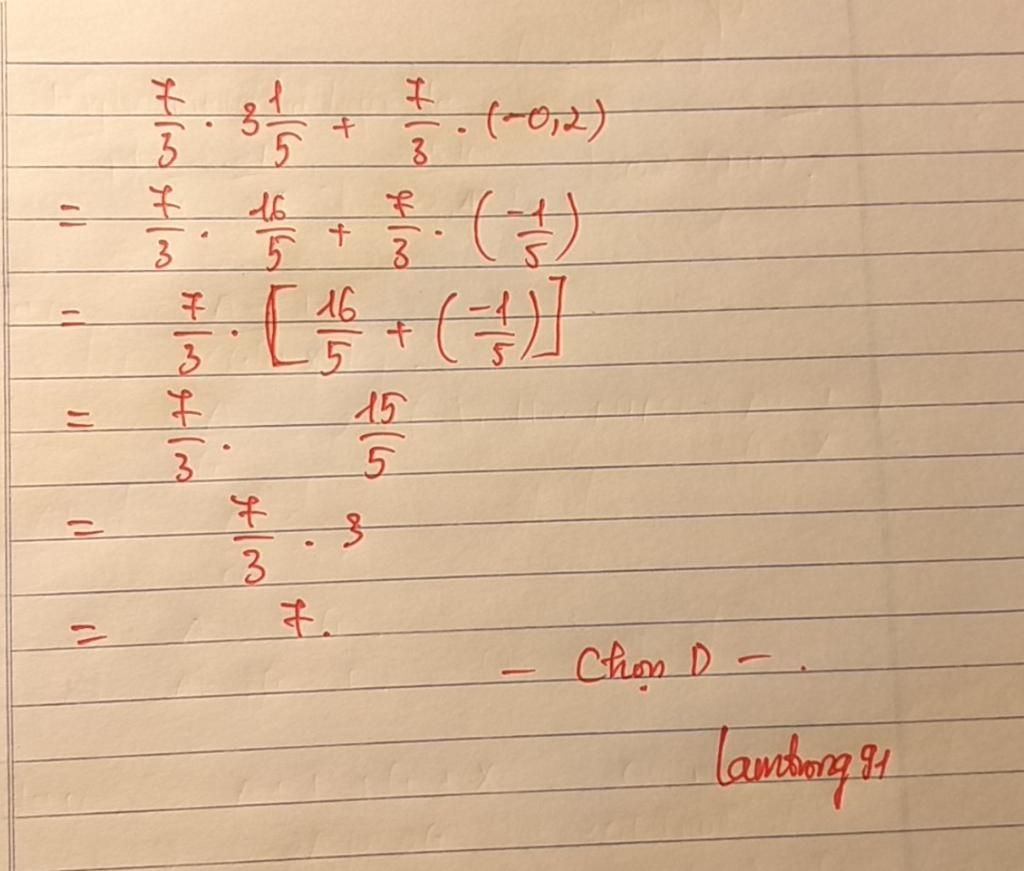 7/3 . 3 1/5 + 7/3 . (-0,2)
= 7/3 . 16/5 + 7/3 . (-1/5)
= 7/3 . [16/5 + (-1/5)]
= 7/3 . 15/5
= 7/3 . 3
= 7.
- Chọn D - .
lamtrong91